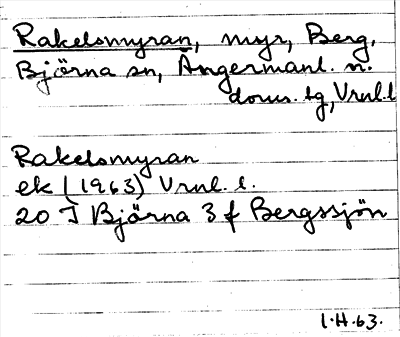 Rakelsmyran, myr, Berg,
Björna sn, Ångermanl. n.
doms. tg, Vrnl. l
Rakelsmyran
ek (1963) Vrnl. l.
20 J Björna 3 f Bergssjön
I.H.63.